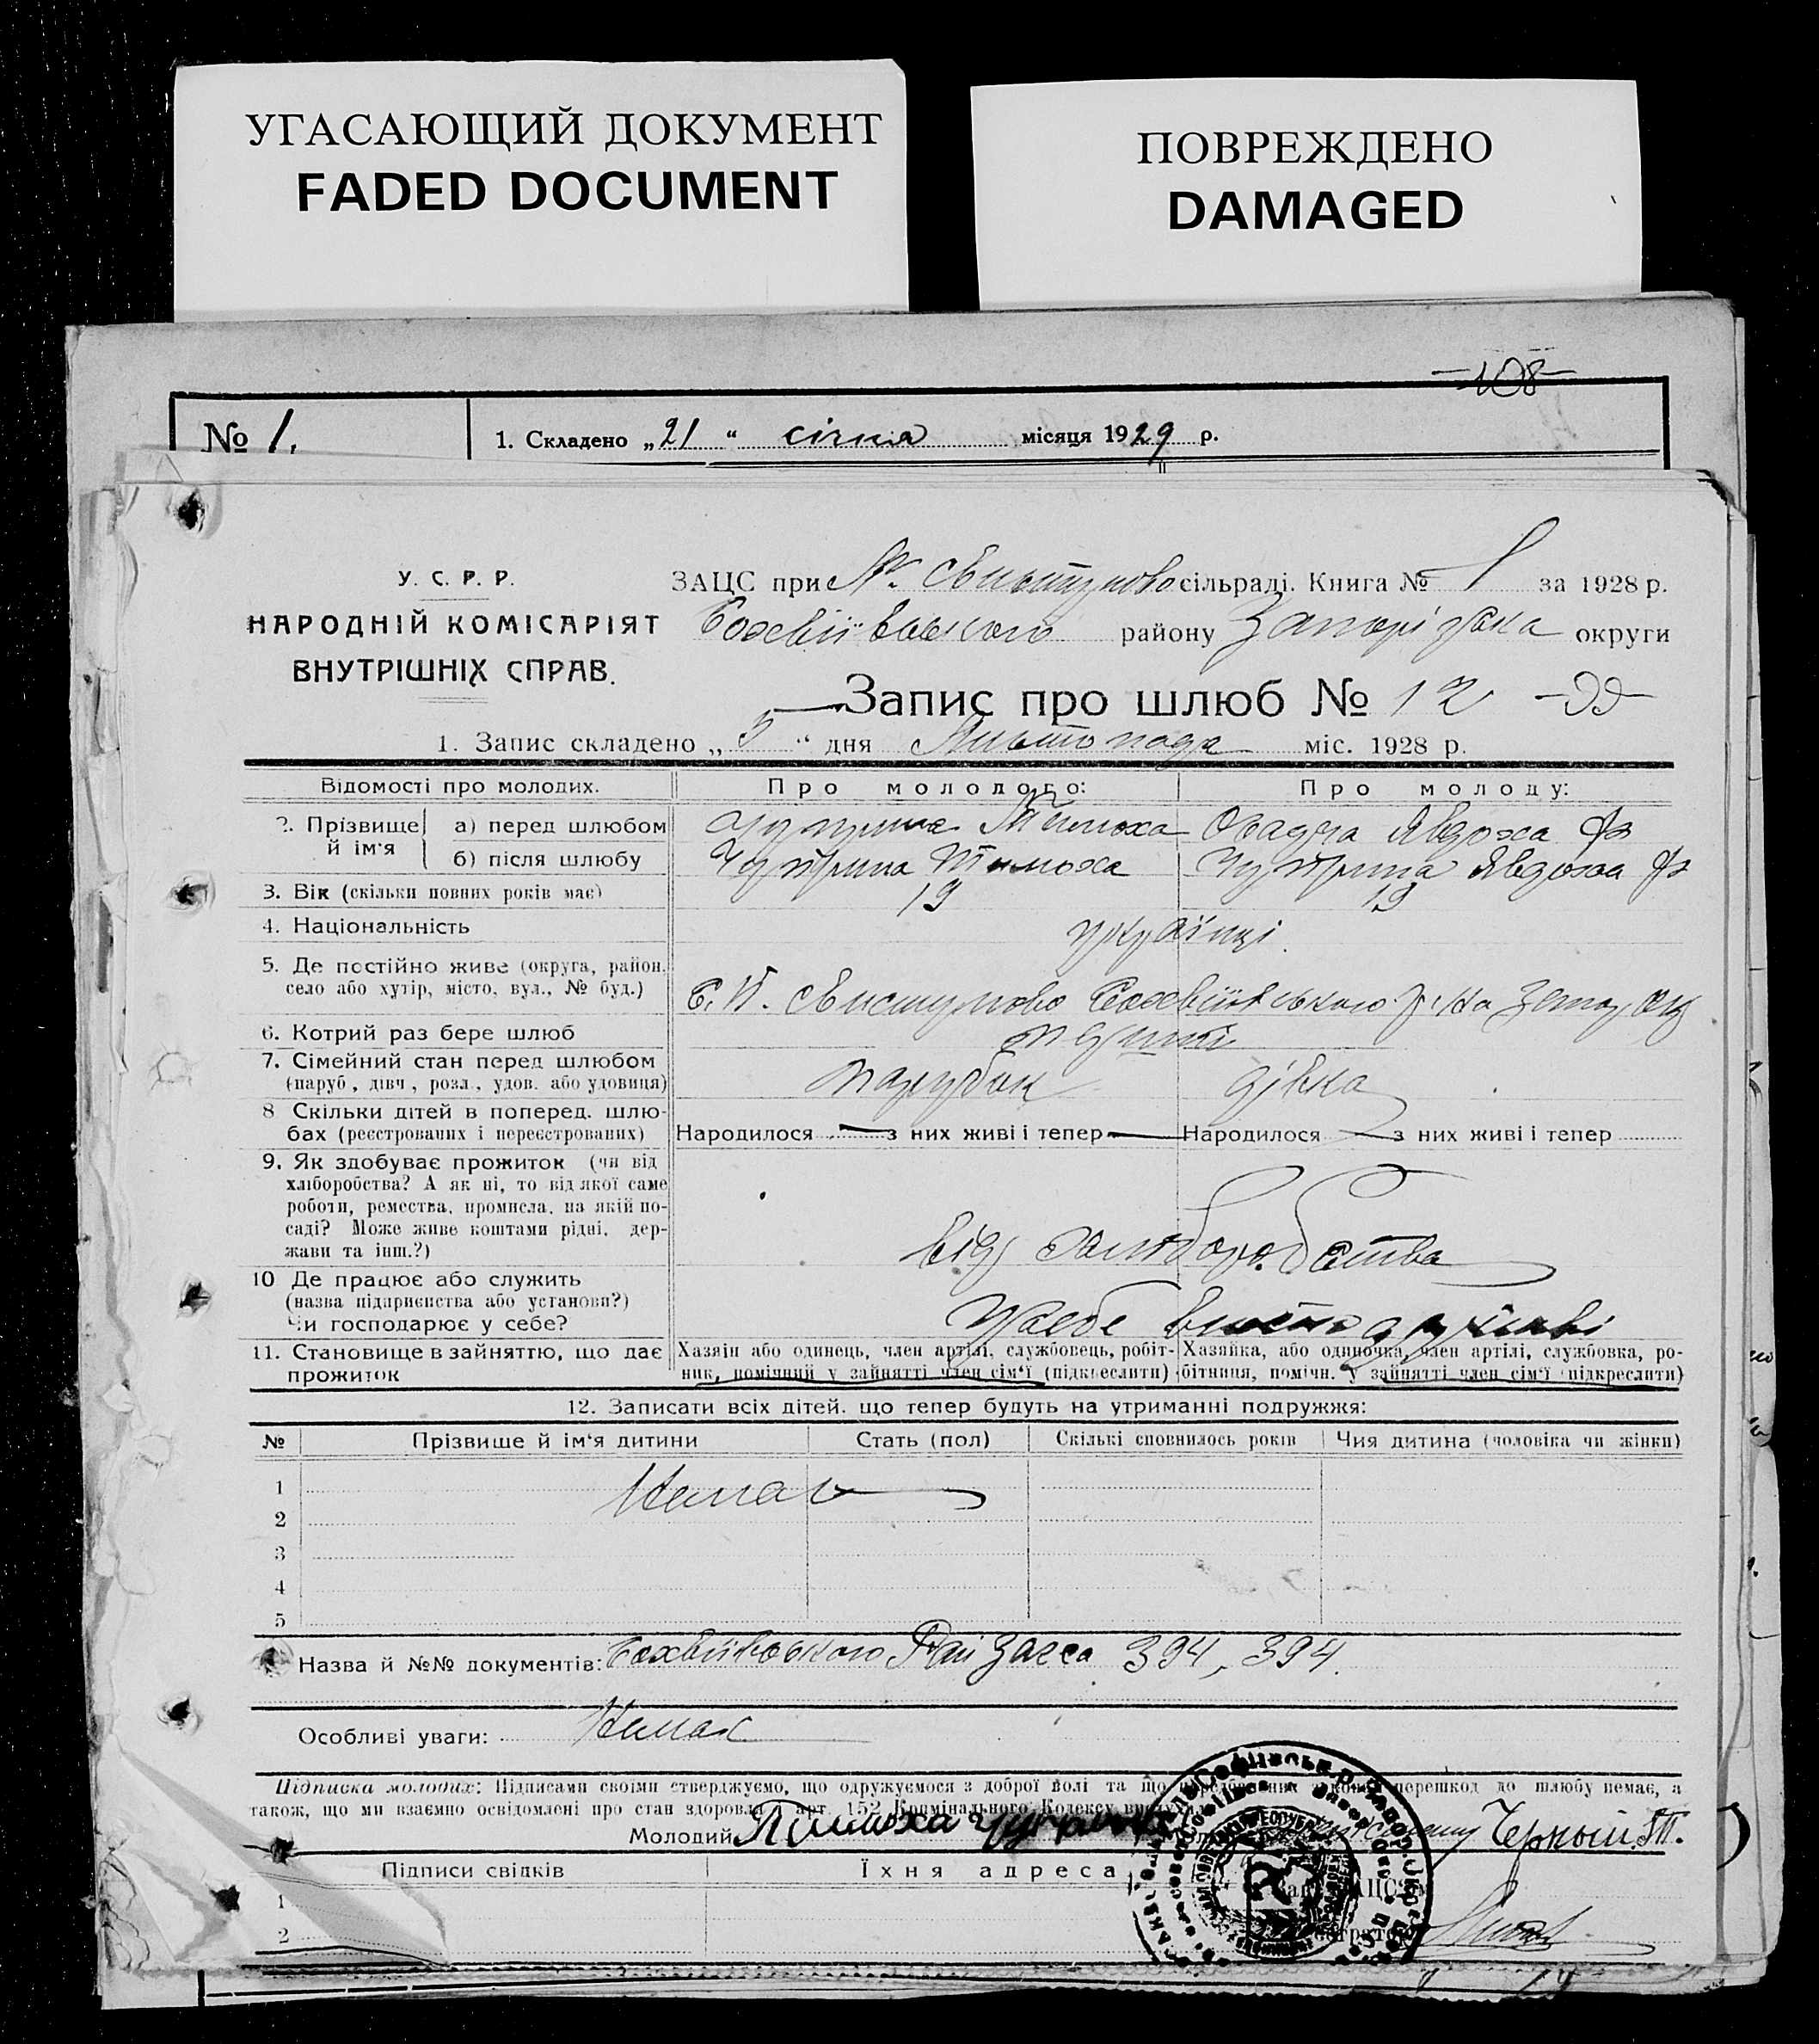 УГАСАЮЩИЙ ДОКУМЕНТ
FADED DOCUMENT
ПОВРЕЖДЕНО
DAMAGED
—108—
№ 1. 1. Складено „21“ січня місяця 1929 р.
У. С. Р. Р.
НАРОДНІЙ КОМІСАРІЯТ
ВНУТРІШНІХ СПРАВ.
ЗАЦС при Н. Свистуново сільраді. Книга № 1 за 1928 р.
Софіївського району Запорізька округи
Запис про шлюб № 12 —99—
1. Запис складено „5“ дня Листопада міс. 1928 р.
Відомості про молодих. Про молодого: Про молоду:
2. Прізвище й ім'я а) перед шлюбом Чуприна Тимоха Явдоха
б) після шлюбу Чуприна Тимоха Чуприна Явдоха
3. Вік (скільки повних років має) 19 19
4. Національність українці.
5. Де постійно живе (округа, район,
село або хутір, місто, вул., № буд.) С. Н. Свистуново Софіївського р-на Запор. окр
6. Котрий раз бере шлюб перший
7. Сімейний стан перед шлюбом
(паруб., дівч., розл., удов. або удовиця) парубок дівка
8 Скільки дітей в поперед. шлю-
бах (реєстрованих і нереєстрованих) Народилося — з них живі і тепер — Народилося — з них живі і тепер
9. Як здобуває прожиток (чи від
хліборобства? А як ні, то від якої саме
роботи, ремества, промисла, на якій по-
саді? Може живе коштами рідні, дер-
жави та інш.?) від хліборобства
10 Де працює або служить
(назва підприємства або установи?)
Чи господарює у себе? У себе в господарстві
11. Становище в зайняттю, що дає
прожиток
Хазяїн або одинець, член артілі, службовець, робіт-
ник, помічний у зайнятті член сім'ї (підкреслити)
Хазяйка, або одиночка, член артілі, службовка, ро-
бітниця, помічн. у зайнятті член сім'ї (підкреслити)
12. Записати всіх дітей, що тепер будуть на утриманні подружжя:
№ Прізвище й ім'я дитини Стать (пол) Скількі сповнилось років Чия дитина (чоловіка чи жінки)
1 Немає
2
3
4
5
Назва й №№ документів: Софіївського Рай Загса 394, 394.
Особливі уваги: Немає
Підписка молодих: Підписами своїми стверджуємо, що одружуємося з доброї волі та що передбачених законом перешкод до шлюбу немає, а
також, що ми взаємно освідомлені про стан здоровля і арт. 152 Кримінального Кодексу
Молодий Тимоха Чуприна Черный.
Підписи свідків Їхня адреса
1
2